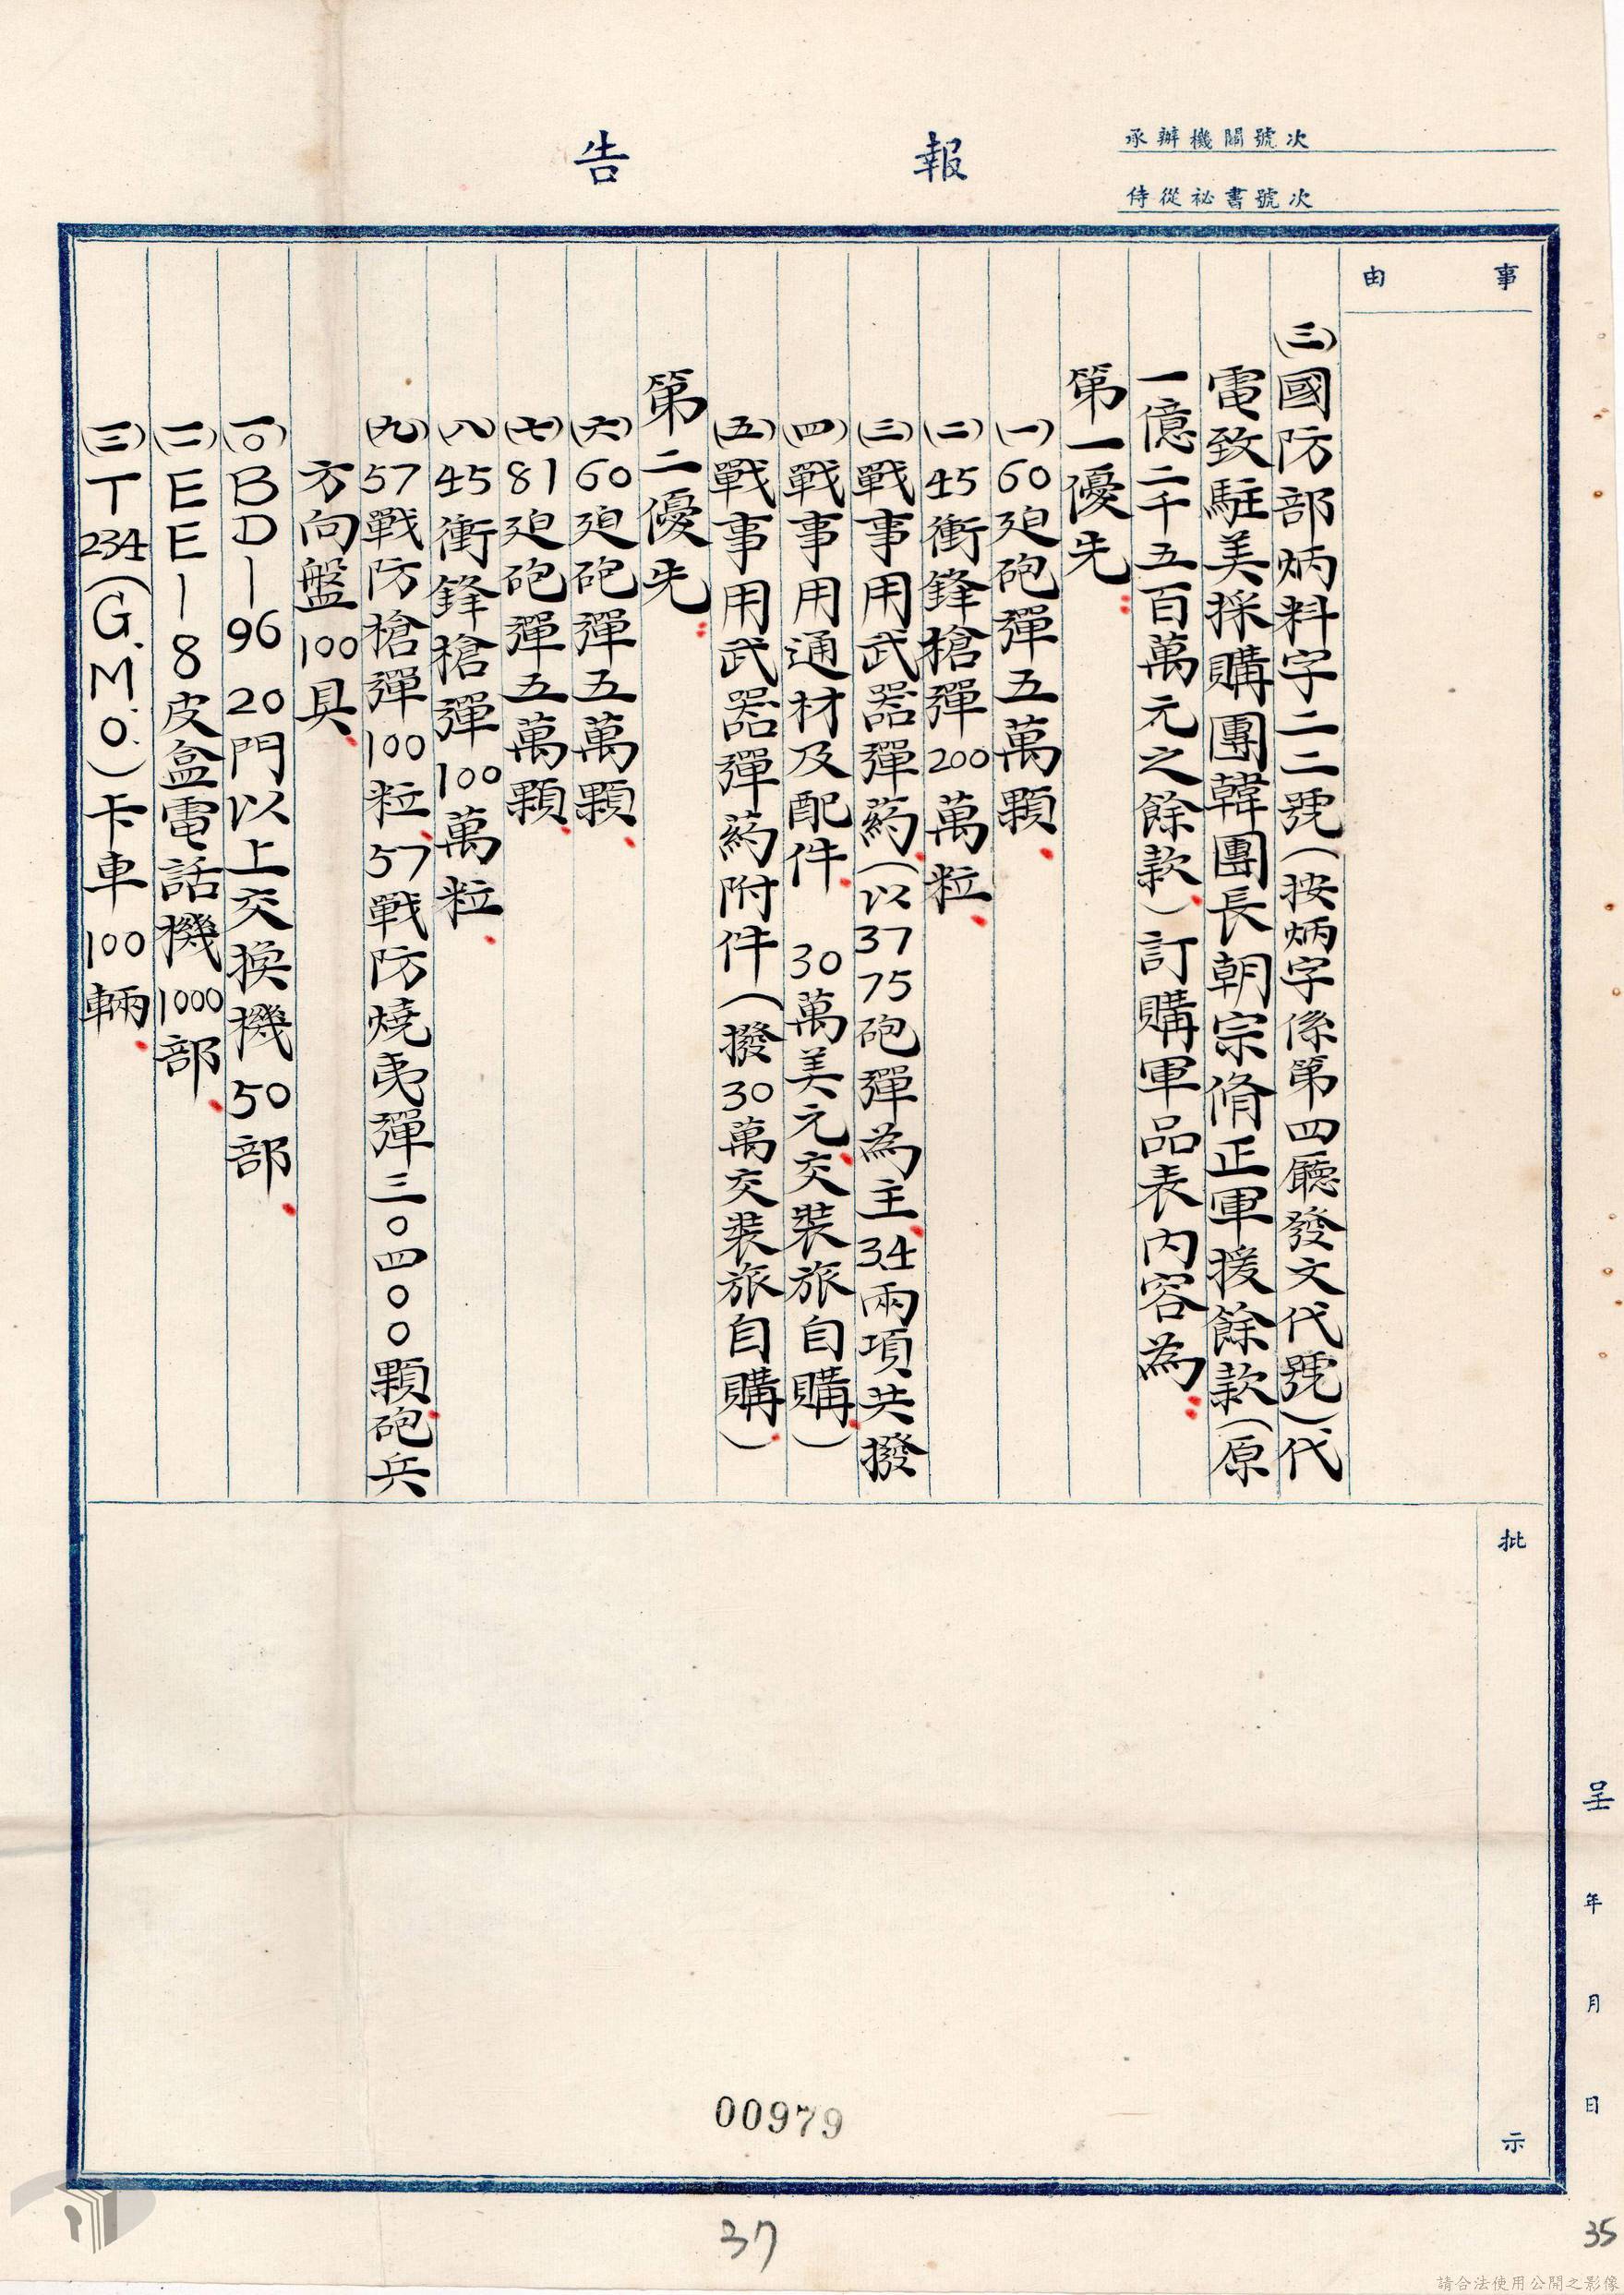 承辦機關號次
侍從祕書號次
報告
事由
(三)國防部炳料字二二號(按炳字係第四廳發文代號)代
電致駐美採購團韓團長朝宗脩正軍援餘款(原
一億二千五百萬元之餘款)訂購軍品表內容為：
第一優先：
(一)60廹砲彈五萬顆、
(二)45衝鋒槍彈200萬粒、
(三)戰事用武器彈葯、(以37 75砲彈為主、34兩項共撥
(四)戰事用通材及配件、30萬美元、交裝旅自購、)
(五)戰事用武器彈葯附件(撥30萬交裝旅自購、)
第二優先：
(六)60廹砲彈五萬顆、
(七)81廹砲彈五萬顆、
(八)45衝鋒槍彈100萬粒、
(九)57戰防槍彈100粒、57戰防燒夷彈三〇四〇〇顆、砲兵
方向盤100具、
(一〇)BD—96 20門以上交換機50部、
(二)EE—8皮盒電話機1000部、
(三)T234(G.M.O.)卡車100輛、
批示
呈 年 月 日
00979
37
35
請合法使用公開之影像